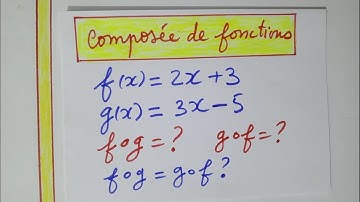 Composée de fonctions
f(x) = 2x + 3
g(x) = 3x - 5
f∘g = ? g∘f = ?
f∘g = g∘f ?